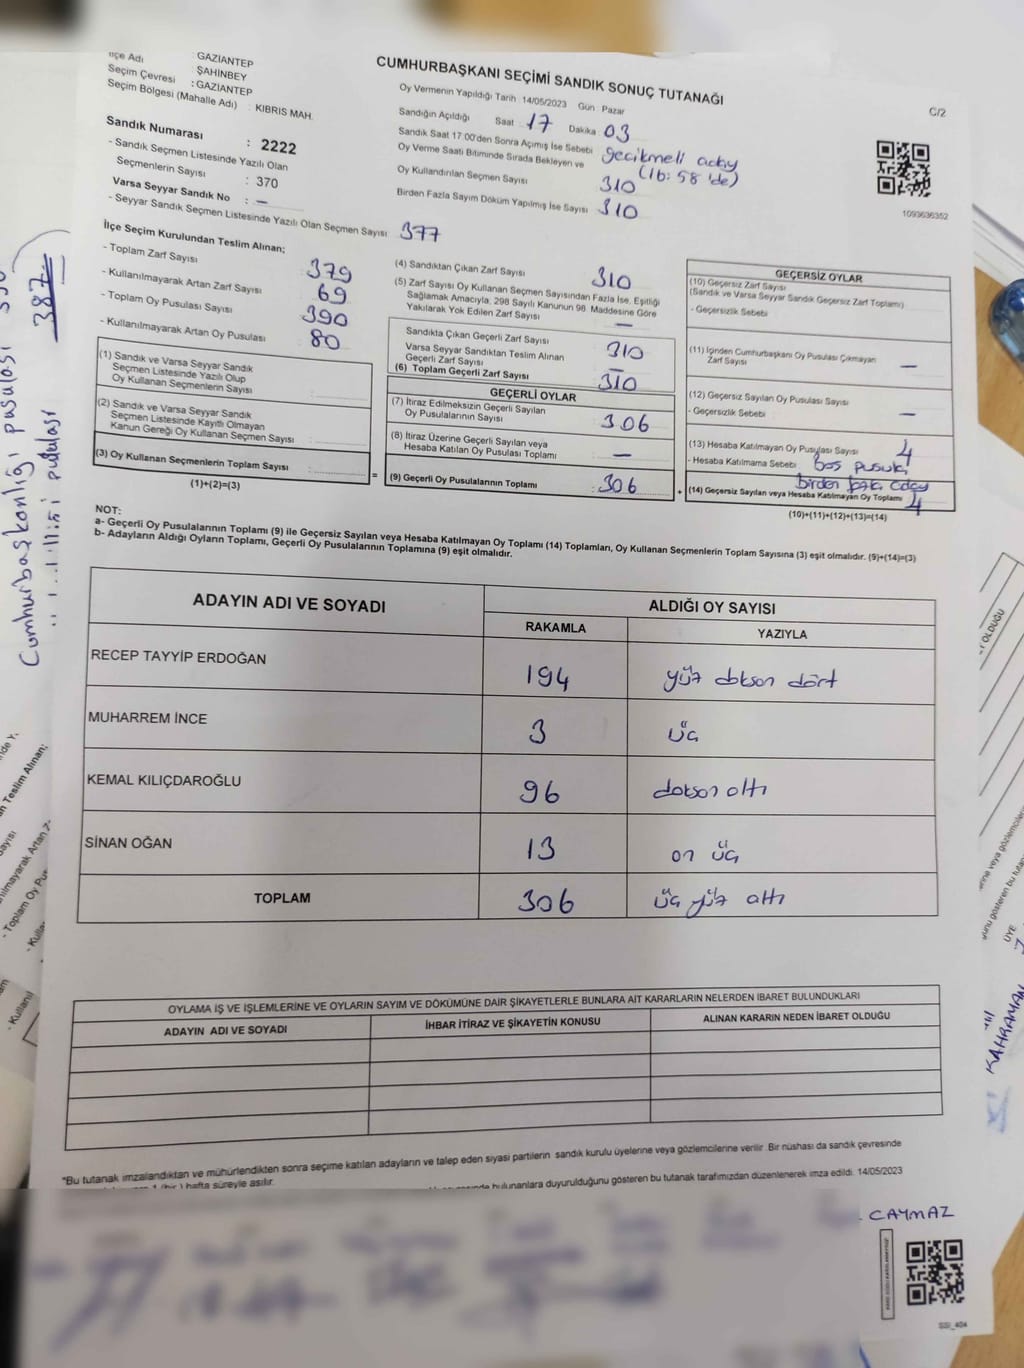 CUMHURBAŞKANI SEÇİMİ SANDIK SONUÇ TUTANAĞI
C/2
İlçe Adı
: GAZİANTEP
ŞAHİNBEY
Seçim Çevresi : GAZİANTEP
Seçim Bölgesi (Mahalle Adı) : KIBRIS MAH.
Sandık Numarası : 2222
- Sandık Seçmen Listesinde Yazılı Olan
Seçmenlerin Sayısı : 370
Varsa Seyyar Sandık No : —
- Seyyar Sandık Seçmen Listesinde Yazılı Olan Seçmen Sayısı 377
Oy Vermenin Yapıldığı Tarih :14/05/2023 Gün : Pazar
Sandığın Açıldığı Saat :17 Dakika :03
Sandık Saat 17:00'den Sonra Açımış İse Sebebi gecikmeli aday
Oy Verme Saati Bitiminde Sırada Bekleyen ve (16:58'de)
Oy Kullandırılan Seçmen Sayısı 310
Birden Fazla Sayım Döküm Yapılmış İse Sayısı 310
1093636352
İlçe Seçim Kurulundan Teslim Alınan;
- Toplam Zarf Sayısı 379
- Kullanılmayarak Artan Zarf Sayısı 69
- Toplam Oy Pusulası Sayısı 390
- Kullanılmayarak Artan Oy Pusulası 80
(1) Sandık ve Varsa Seyyar Sandık
Seçmen Listesinde Yazılı Olup
Oy Kullanan Seçmenlerin Sayısı :
(2) Sandık ve Varsa Seyyar Sandık
Seçmen Listesinde Kayıtlı Olmayan
Kanun Gereği Oy Kullanan Seçmen Sayısı :
(3) Oy Kullanan Seçmenlerin Toplam Sayısı :
(1)+(2)=(3)
=
(4) Sandıktan Çıkan Zarf Sayısı 310
(5) Zarf Sayısı Oy Kullanan Seçmen Sayısından Fazla İse, Eşitliği
Sağlamak Amacıyla, 298 Sayılı Kanunun 98. Maddesine Göre
Yakılarak Yok Edilen Zarf Sayısı —
Sandıkta Çıkan Geçerli Zarf Sayısı 310
Varsa Seyyar Sandıktan Teslim Alınan
Geçerli Zarf Sayısı —
(6) Toplam Geçerli Zarf Sayısı 310
GEÇERLİ OYLAR
(7) İtiraz Edilmeksizin Geçerli Sayılan
Oy Pusulalarının Sayısı : 306
(8) İtiraz Üzerine Geçerli Sayılan veya
Hesaba Katılan Oy Pusulası Toplamı : —
(9) Geçerli Oy Pusulalarının Toplamı : 306
+
GEÇERSİZ OYLAR
(10) Geçersiz Zarf Sayısı
(Sandık ve Varsa Seyyar Sandık Geçersiz Zarf Toplamı)
- Geçersizlik Sebebi :
(11) İçinden Cumhurbaşkanı Oy Pusulası Çıkmayan
Zarf Sayısı —
(12) Geçersiz Sayılan Oy Pusulası Sayısı
- Geçersizlik Sebebi : —
(13) Hesaba Katılmayan Oy Pusulası Sayısı 4
- Hesaba Katılmama Sebebi : boş pusula,
birden fazla aday
(14) Geçersiz Sayılan veya Hesaba Katılmayan Oy Toplamı 4
(10)+(11)+(12)+(13)=(14)
NOT:
a- Geçerli Oy Pusulalarının Toplamı (9) ile Geçersiz Sayılan veya Hesaba Katılmayan Oy Toplamı (14) Toplamları, Oy Kullanan Seçmenlerin Toplam Sayısına (3) eşit olmalıdır. (9)+(14)=(3)
b- Adayların Aldığı Oyların Toplamı, Geçerli Oy Pusulalarının Toplamına (9) eşit olmalıdır.
ADAYIN ADI VE SOYADI ALDIĞI OY SAYISI
RAKAMLA YAZIYLA
RECEP TAYYİP ERDOĞAN 194 yüz doksan dört
MUHARREM İNCE 3 üç
KEMAL KILIÇDAROĞLU 96 doksan altı
SİNAN OĞAN 13 on üç
TOPLAM 306 üç yüz altı
OYLAMA İŞ VE İŞLEMLERİNE VE OYLARIN SAYIM VE DÖKÜMÜNE DAİR ŞİKAYETLERLE BUNLARA AİT KARARLARIN NELERDEN İBARET BULUNDUKLARI
ADAYIN ADI VE SOYADI İHBAR İTİRAZ VE ŞİKAYETİN KONUSU ALINAN KARARIN NEDEN İBARET OLDUĞU
"Bu tutanak imzalandıktan ve mühürlendikten sonra seçime katılan adayların ve talep eden siyasi partilerin sandık kurulu üyelerine veya gözlemcilerine verilir. Bir nüshası da sandık çevresinde
1 (bir) hafta süreyle asılır.
bulunanlara duyurulduğunu gösteren bu tutanak tarafımızdan düzenlenerek imza edildi. 14/05/2023
CAYMAZ
SSI_404
Cumhurbaşkanlığı pusulası
387
pudulası
KAHRAMAN
ÜYE
OLDUĞU
n Teslim Alınan;
- Toplam Oy Pus
- Kullanıl